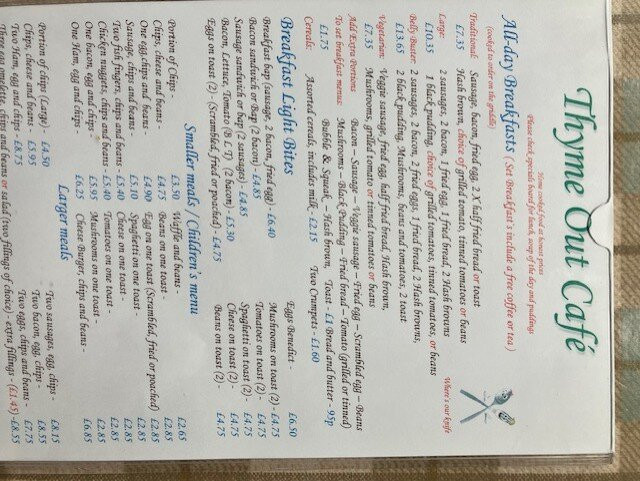 Thyme Out Café
Home cooked food at honest prices
Please check specials board for lunch, soup of the day and puddings
Where's our knife
All-day Breakfasts ( Set Breakfast's include a free coffee or tea )
(cooked to order on the griddle)
Traditional: Sausage, bacon, fried egg, 2 X half fried bread or toast
£7.35 Hash brown, choice of grilled tomato, tinned tomatoes or beans
Large: 2 sausages, 2 bacon, 1 fried egg, 1 fried bread, 2 Hash browns
£10.35 1 black pudding, choice of grilled tomatoes, tinned tomatoes, or beans
Belly Buster: 2 sausages, 2 bacon, 2 fried eggs, 1 fried bread, 2 Hash browns,
£13.65 2 black pudding, Mushrooms, beans and tomatoes, 2 toast
Vegetarian: Veggie sausage, fried egg, half fried bread, Hash brown,
£7.35 Mushrooms, grilled tomato or tinned tomatoes or beans
Add Extra Portions Bacon – Sausage – Veggie sausage – Fried egg – Scrambled egg – Beans
To set breakfast menus: Mushrooms – Black Pudding – Fried bread – Tomato (grilled or tinned)
£1.75 Bubble & Squeak – Hash brown, Toast - £1 Bread and butter - 95p
Cereals: Assorted cereals, includes milk - £2.15 Two Crumpets - £1.60
Breakfast Light Bites
Eggs Benedict - £6.50
Breakfast bap (sausage, 2 bacon, fried egg) - £6.40 Mushrooms on toast (2) - £4.75
Bacon sandwich or Bap (2 bacon) - £4.85 Tomatoes on toast (2) - £4.75
Sausage sandwich or bap (2 sausages) - £4.85 Spaghetti on toast (2) - £4.75
Bacon, Lettuce, Tomato (B L T) (2 bacon) - £5.30 Cheese on toast (2) - £4.75
Eggs on toast (2) - (Scrambled, fried or poached) - £4.75 Beans on toast (2) - £4.75
Smaller meals / Children's menu
Portion of Chips - £3.50 Waffle and beans - £2.65
Chips, cheese and beans - £4.75 Beans on one toast - £2.85
One egg, chips and beans - £4.90 Egg on one toast (Scrambled, fried or poached) £2.85
Sausage, chips and beans - £5.10 Spaghetti on one toast - £2.85
Two fish fingers, chips and beans - £5.40 Cheese on one toast - £2.85
Chicken nuggets, chips and beans - £5.40 Tomatoes on one toast - £2.85
One bacon, egg and chips - £5.95 Mushrooms on one toast - £2.85
One Ham, egg and chips - £6.25 Cheese Burger, chips and beans - £6.85
Larger meals
Portion of chips (Large) £4.50 Two sausages, egg, chips - £8.15
Chips, cheese and beans - £5.95 Two bacon, egg, chips - £8.55
Two Ham, egg and chips - £8.75 Two eggs, chips and beans - £7.75
Three egg omelette, chips and beans or salad (two fillings of choice) - extra fillings - (£1.45) -£8.55